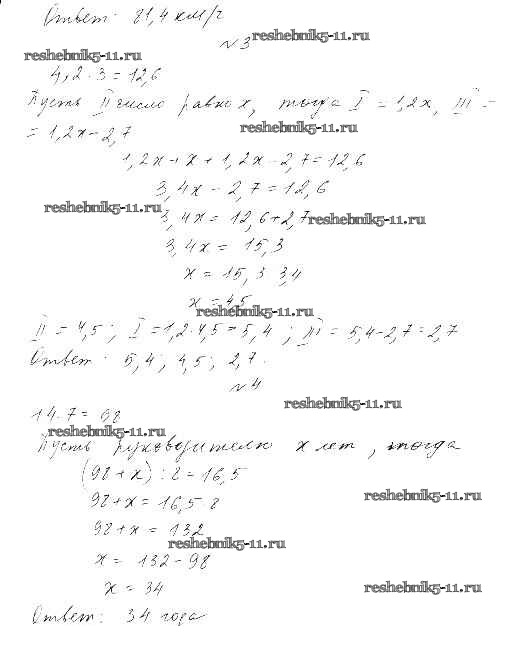 Ответ: 81,4 км/г
N3 reshebnik5-11.ru
reshebnik5-11.ru
4,2 · 3 = 12,6
Пусть II число равно x, тогда I = 1,2x, III =
reshebnik5-11.ru
= 1,2x - 2,7
1,2x + x + 1,2x - 2,7 = 12,6
3,4x - 2,7 = 12,6
reshebnik5-11.ru 3,4x = 12,6 + 2,7 reshebnik5-11.ru
3,4x = 15,3
x = 15,3 3,4
x = 4,5
reshebnik5-11.ru
II = 4,5; I = 1,2 · 4,5 = 5,4; III = 5,4 - 2,7 = 2,7
Ответ: 5,4; 4,5; 2,7.
N4
reshebnik5-11.ru
14 · 7 = 98
reshebnik5-11.ru
Пусть руководителю x лет, тогда
(98 + x) : 8 = 16,5
98 + x = 16,5 · 8 reshebnik5-11.ru
98 + x = 132
reshebnik5-11.ru
x = 132 - 98
x = 34 reshebnik5-11.ru
Ответ: 34 года